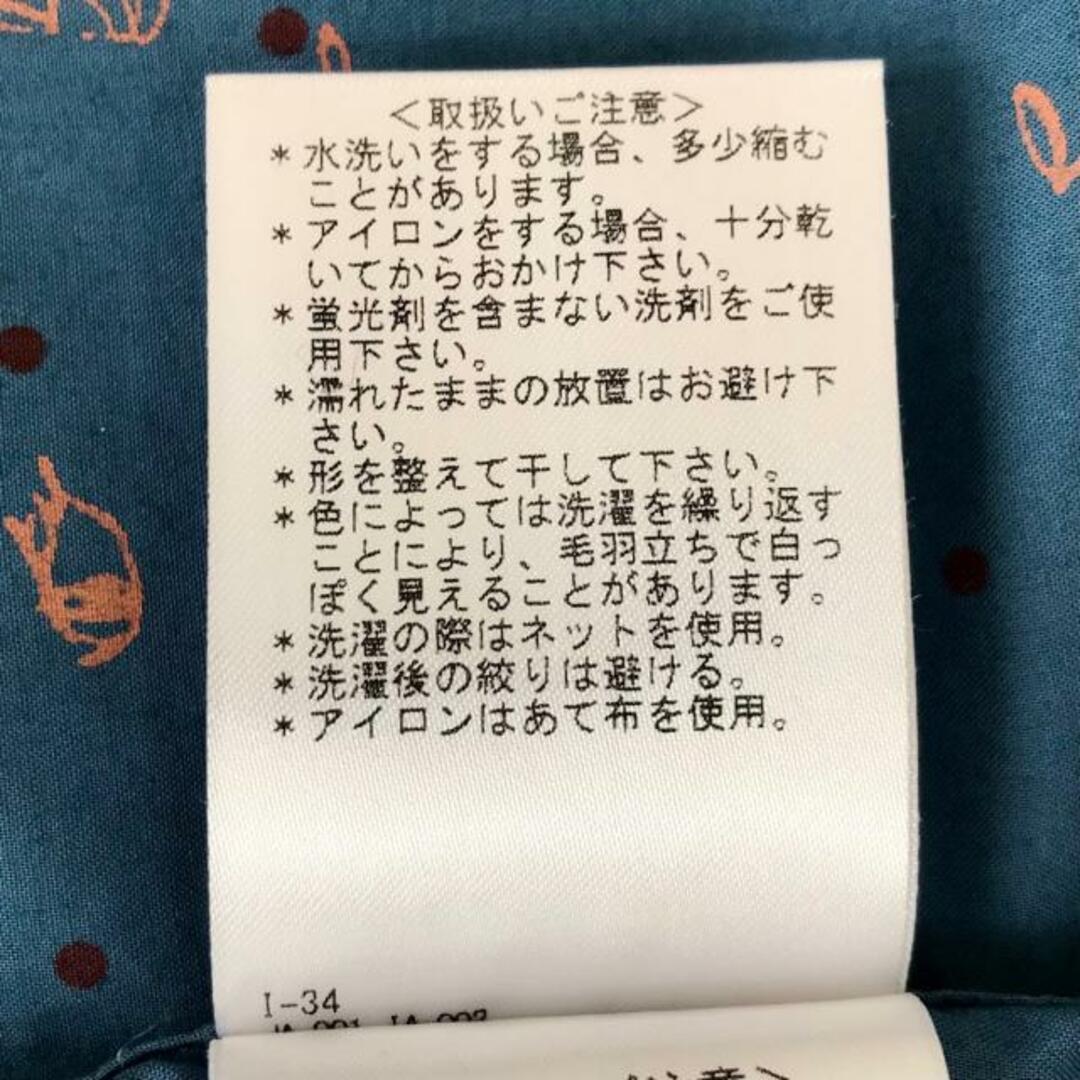 ＜取扱いご注意＞
＊水洗いをする場合、多少縮む
ことがあります。
＊アイロンをする場合、十分乾
いてからおかけ下さい。
＊蛍光剤を含まない洗剤をご使
用下さい。
＊濡れたままの放置はお避け下
さい。
＊形を整えて干して下さい。
＊色によっては洗濯を繰り返す
ことにより、毛羽立ちで白っ
ぽく見えることがあります。
＊洗濯の際はネットを使用。
＊洗濯後の絞りは避ける。
＊アイロンはあて布を使用。
I-34